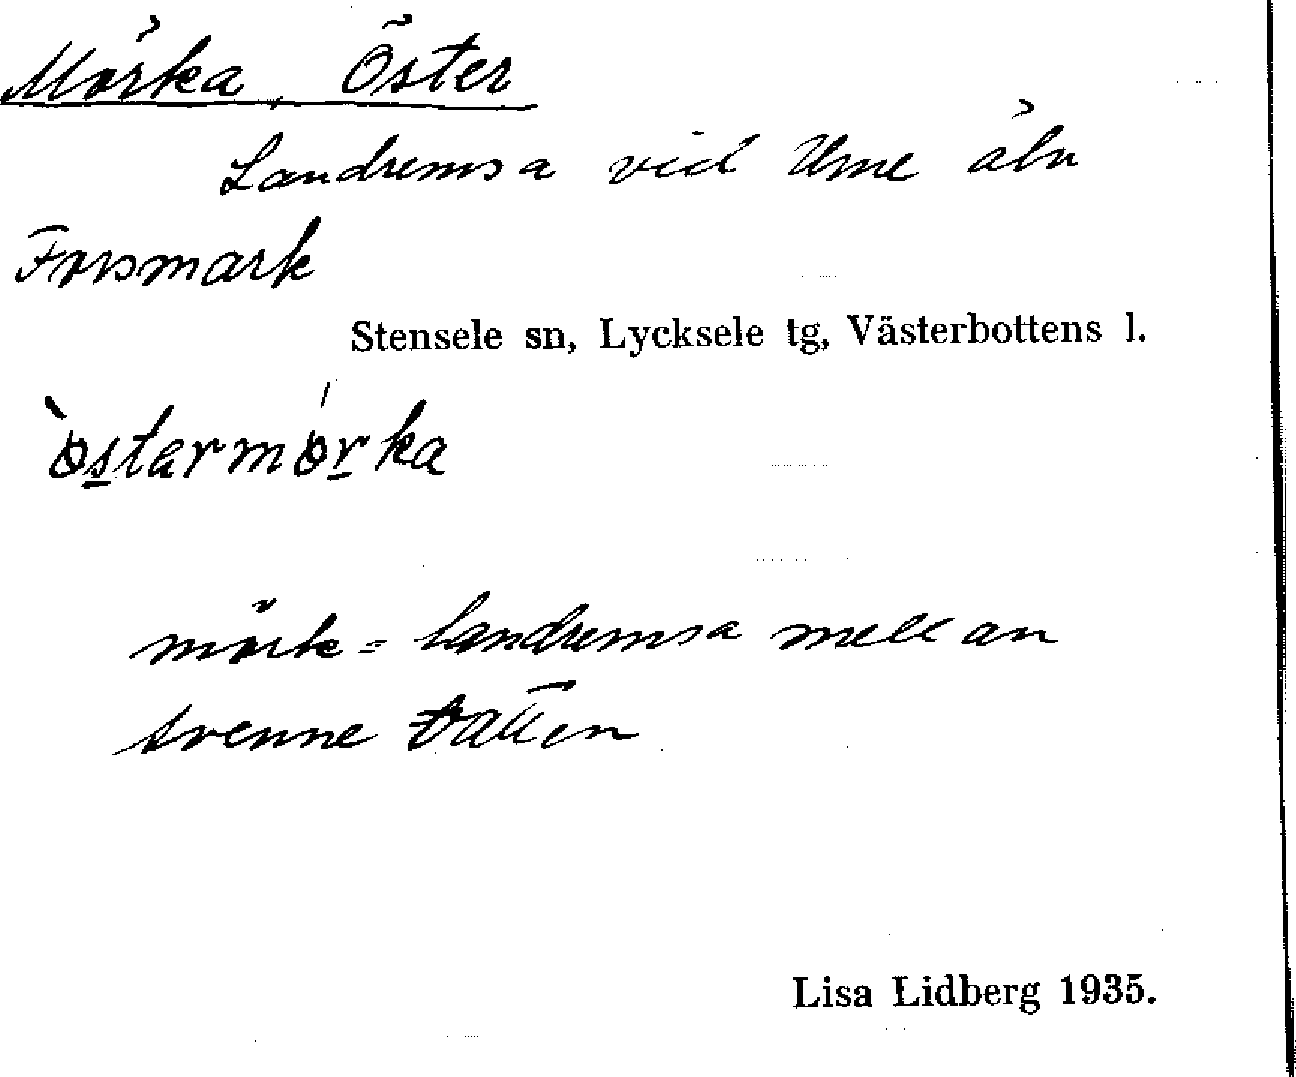 Mörka, Öster
Landremsa vid Ume älv
Forsmark
Stensele sn, Lycksele tg, Västerbottens l.
òstarmórka
mörk = landremsa mellan
tvenne vatten
Lisa Lidberg 1935.